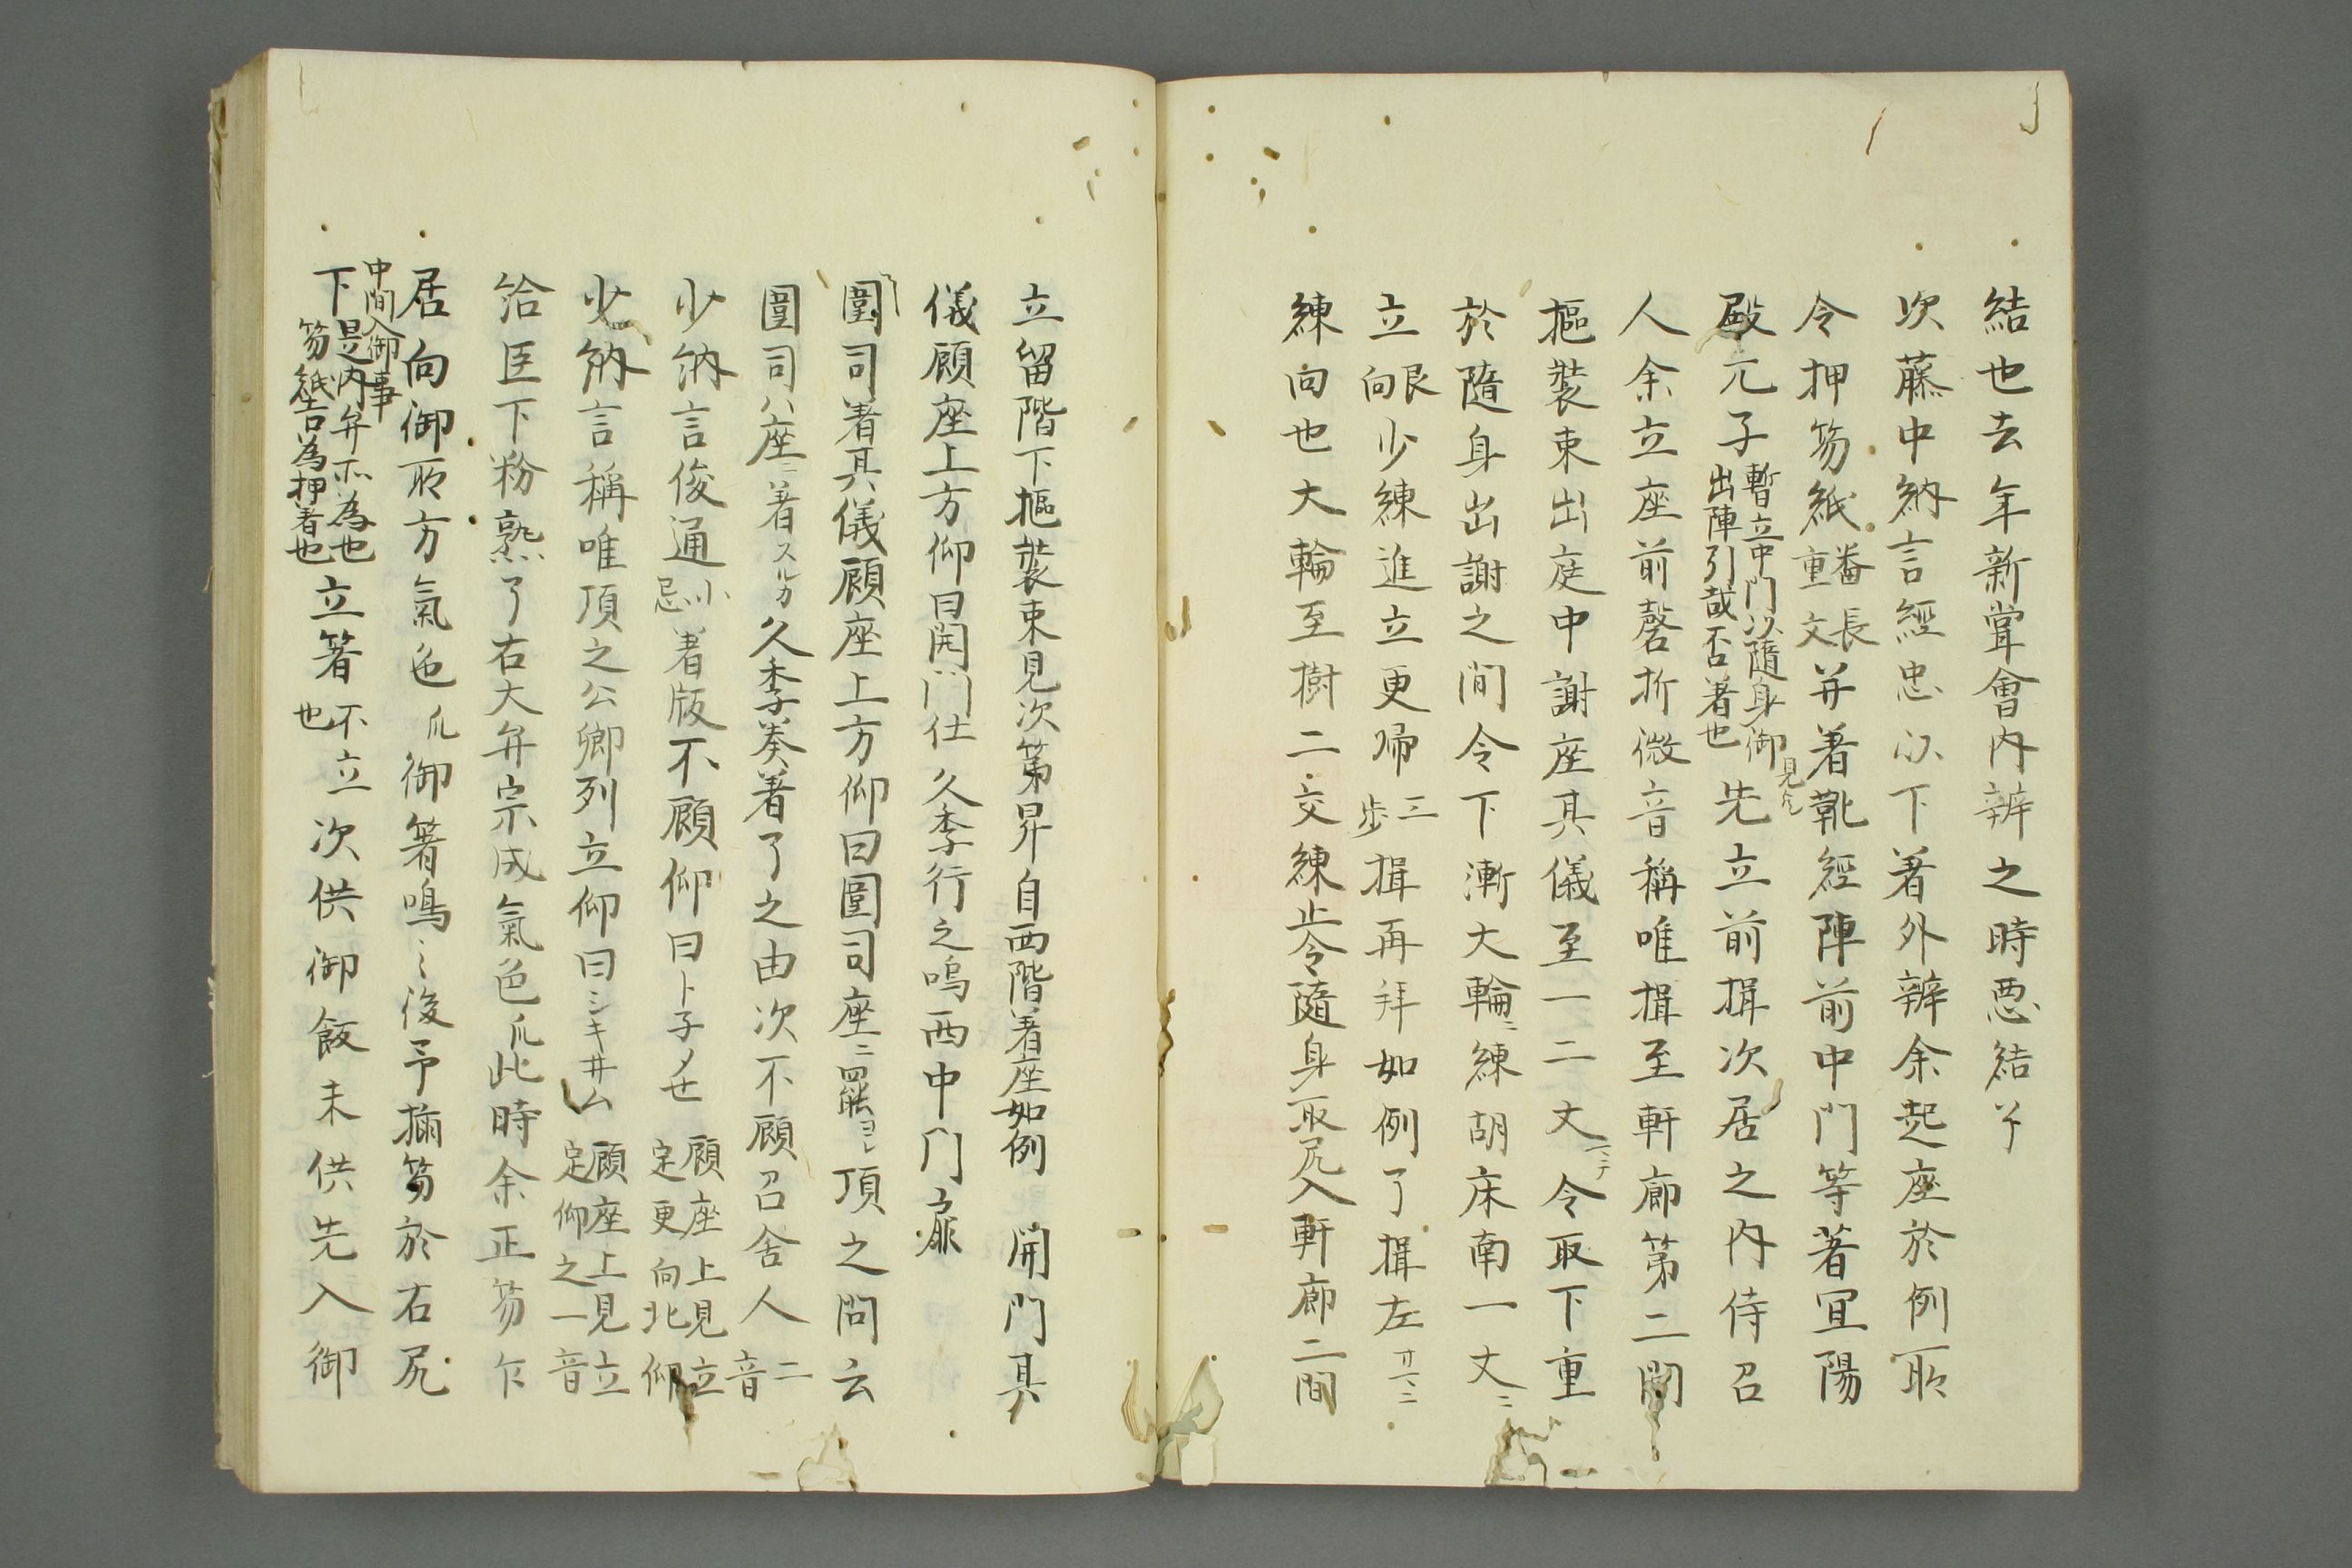 結也去年新嘗會内辨之時悪結㕝
次藤中納言經忠以下著外辨余起座於例所
令押笏紙番長重文并著靴經陣前中門等著宜陽
殿兀子暫立中門以隨身御見了出陣引哉否著也先立前揖次居之内侍召
人余立座前磬折微音稱唯揖至軒廊第二間
摳裝束出庭中謝座其儀至一二丈令取下重
於隨身出謝之間令下漸大輪ニ練胡床南一丈ニ
立艮向少練進立更帰三歩揖再拜如例了揖左
練向也大輪至樹二交練止令隨身取尻入軒廊二間
立留階下摳裝束見次第昇自西階著座如例 開門其
儀顧座上方仰曰開門仕久季行之鳴西中門扉
圍司着其儀顧座上方仰曰圍司座ニ罷ヨシ頂之問云
圍司ハ座ニ著スルカ久季奏著了之由次不顧召舍人二音
少納言俊通小忌著版不顧仰曰トネメセ顧座上見立定更向北仰
少納言稱唯頂之公卿列立仰曰シキ井ム顧座上見立定仰之一音
給臣下粉熟了右大弁宗成氣色爪此時余正笏乍
居向御所方氣色爪御箸鳴〻後予搢笏於右尻
中間入御事
下是内弁不為也笏紙吉為押著也立箸不立也次供御飯未供先入御